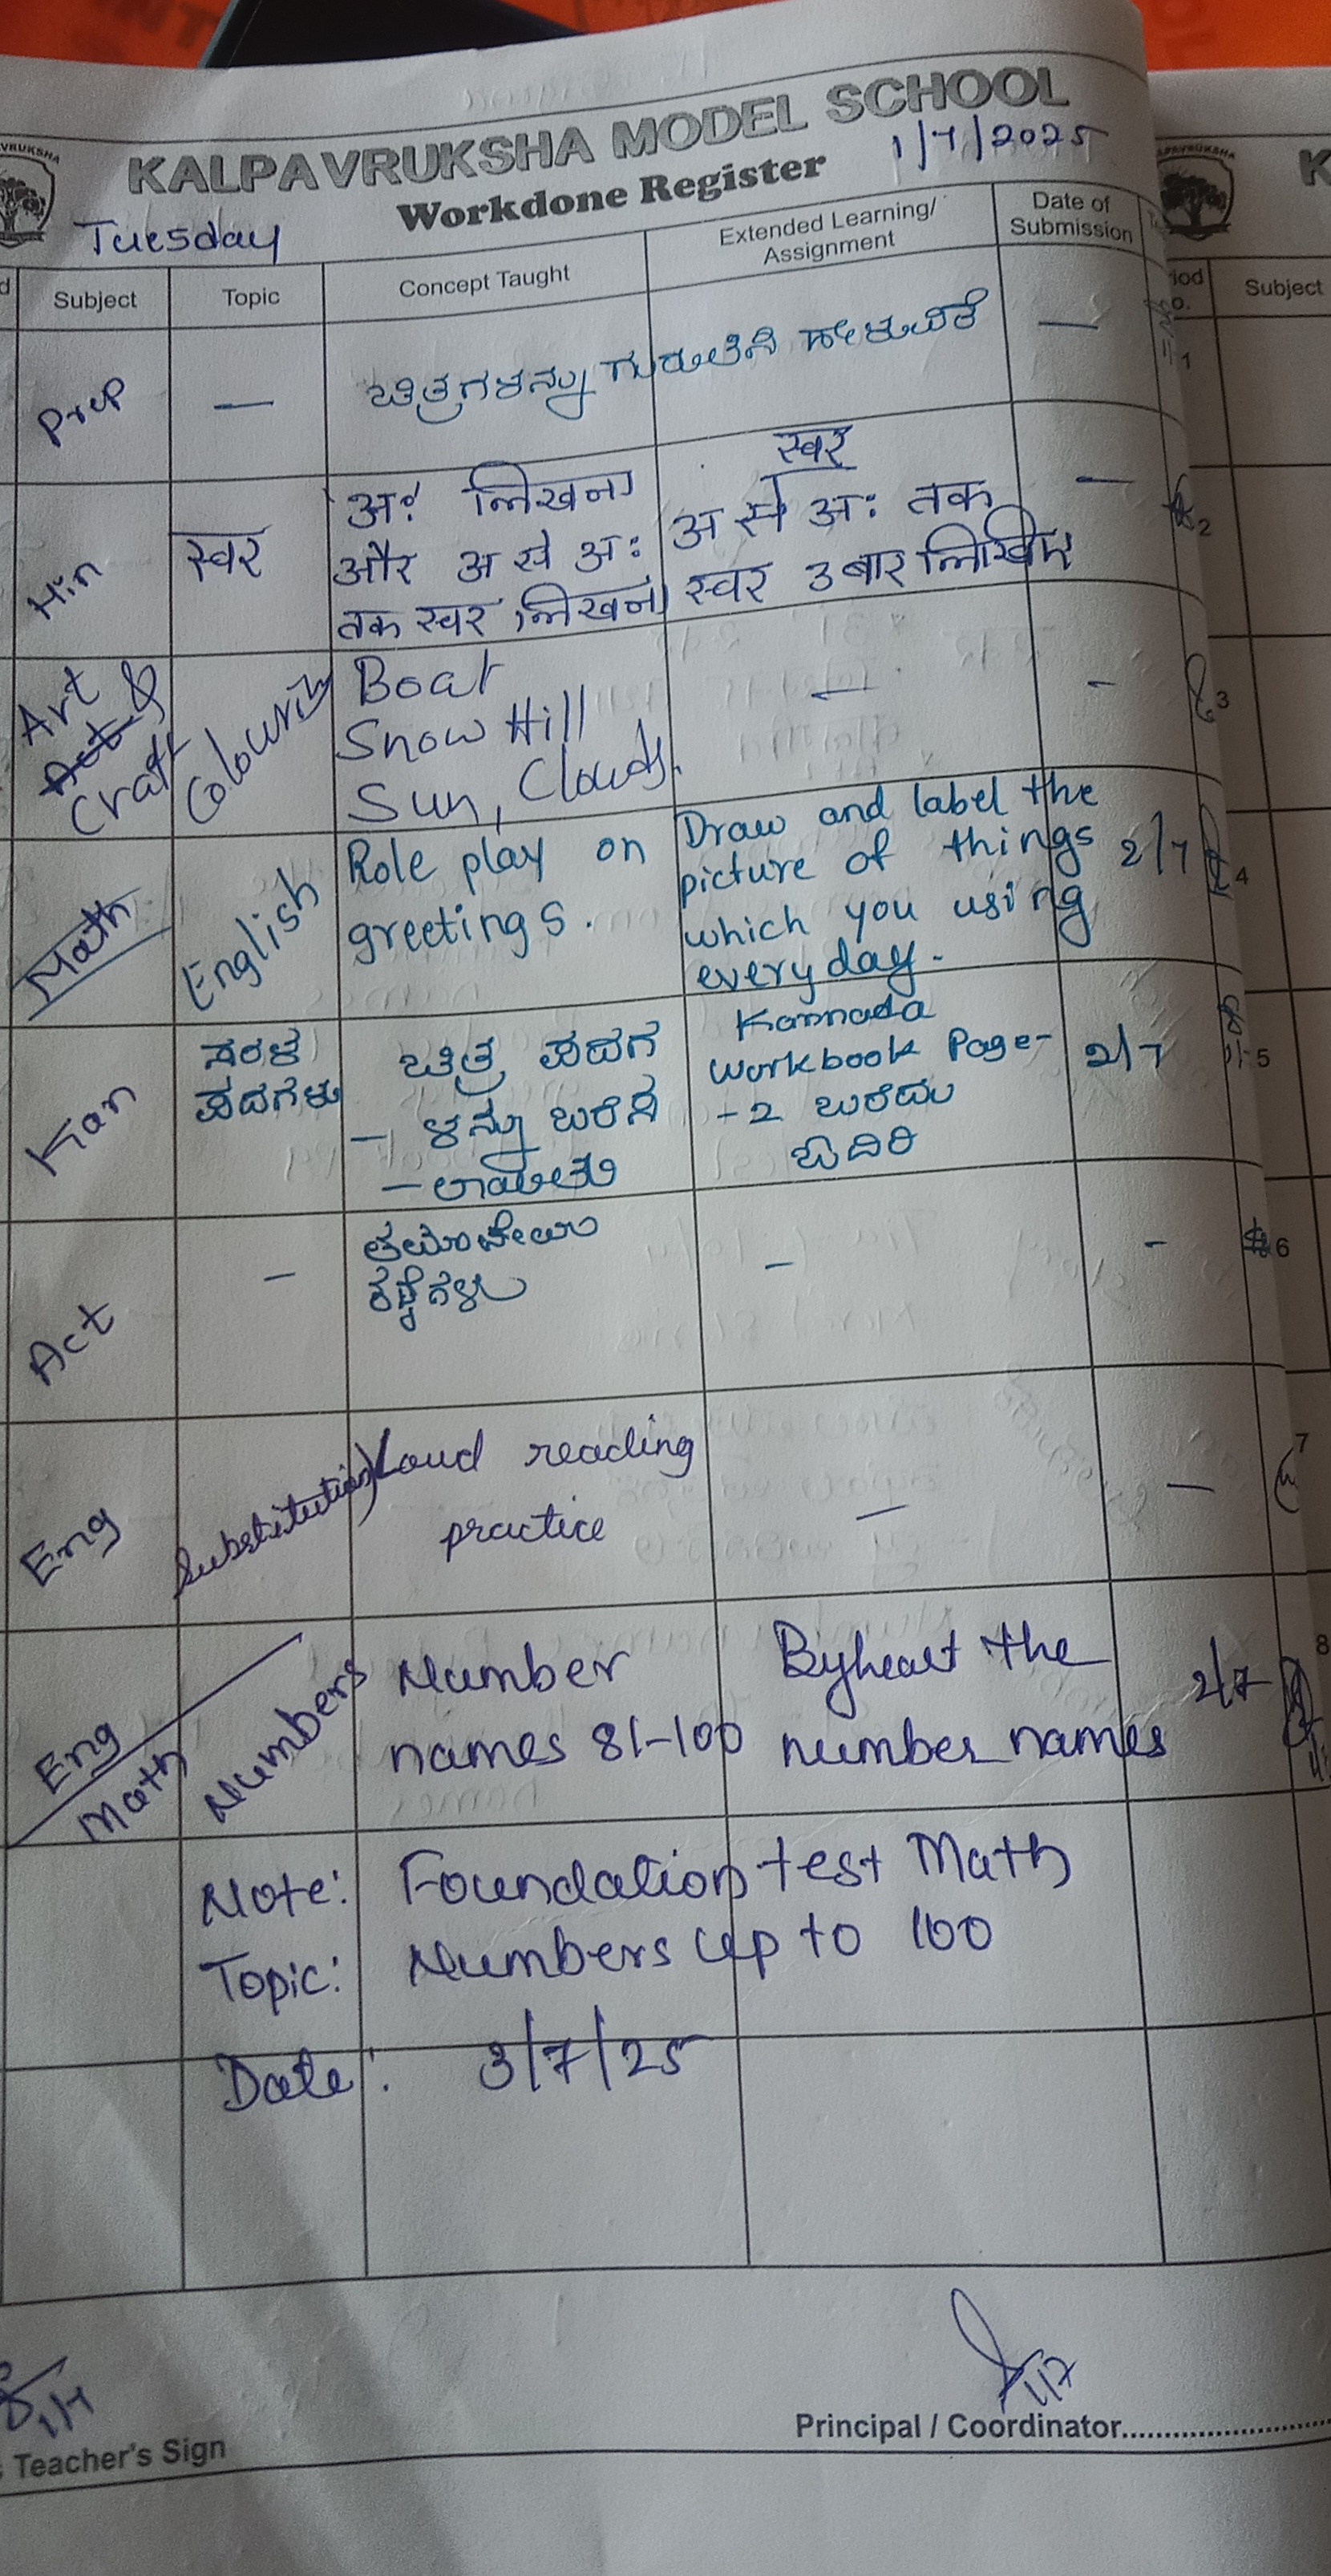 KALPAVRUKSHA MODEL SCHOOL
1/7/2025
Workdone Register
Tuesday
Subject
Topic
Concept Taught
Extended Learning/
Assignment
Date of
Submission
Prep
—
ಚಿತ್ರಗಳನ್ನು ಗುರುತಿಸಿ ಹೇಳುವಿಕೆ
—
Hin
स्वर
अः लिखना
और अ से अः
तक स्वर लिखना
स्वर
अ से अः तक
स्वर 3 बार लिखिए
—
Art &
Craft
Colouring
Boat
Snow Hill
Sun, Clouds.
—
—
Math
English
Role play on
greetings.
Draw and label the
picture of things
which you using
everyday.
2/7
Kan
ಸರಳ
ಪದಗಳು
ಚಿತ್ರ ಪದಗ
— ಳನ್ನು ಬರೆಸ
—ಲಾಯಿತು
Kannada
Workbook Page-
-2 ಬರೆದು
ಓದಿರಿ
2/7
Act
—
—
—
Eng
Substitution
Loud reading
practice
—
—
Eng
Math
Numbers
Number
names 81-100
Byheart the
number names
2/7
Note: Foundation test Math
Topic: Numbers up to 100
Date: 3/7/25
1/7
1/7
Teacher's Sign
Principal / Coordinator
VRUKSHA
KALPAVRUKSHA
K
Subject
1
2
3
4
5
6
7
8